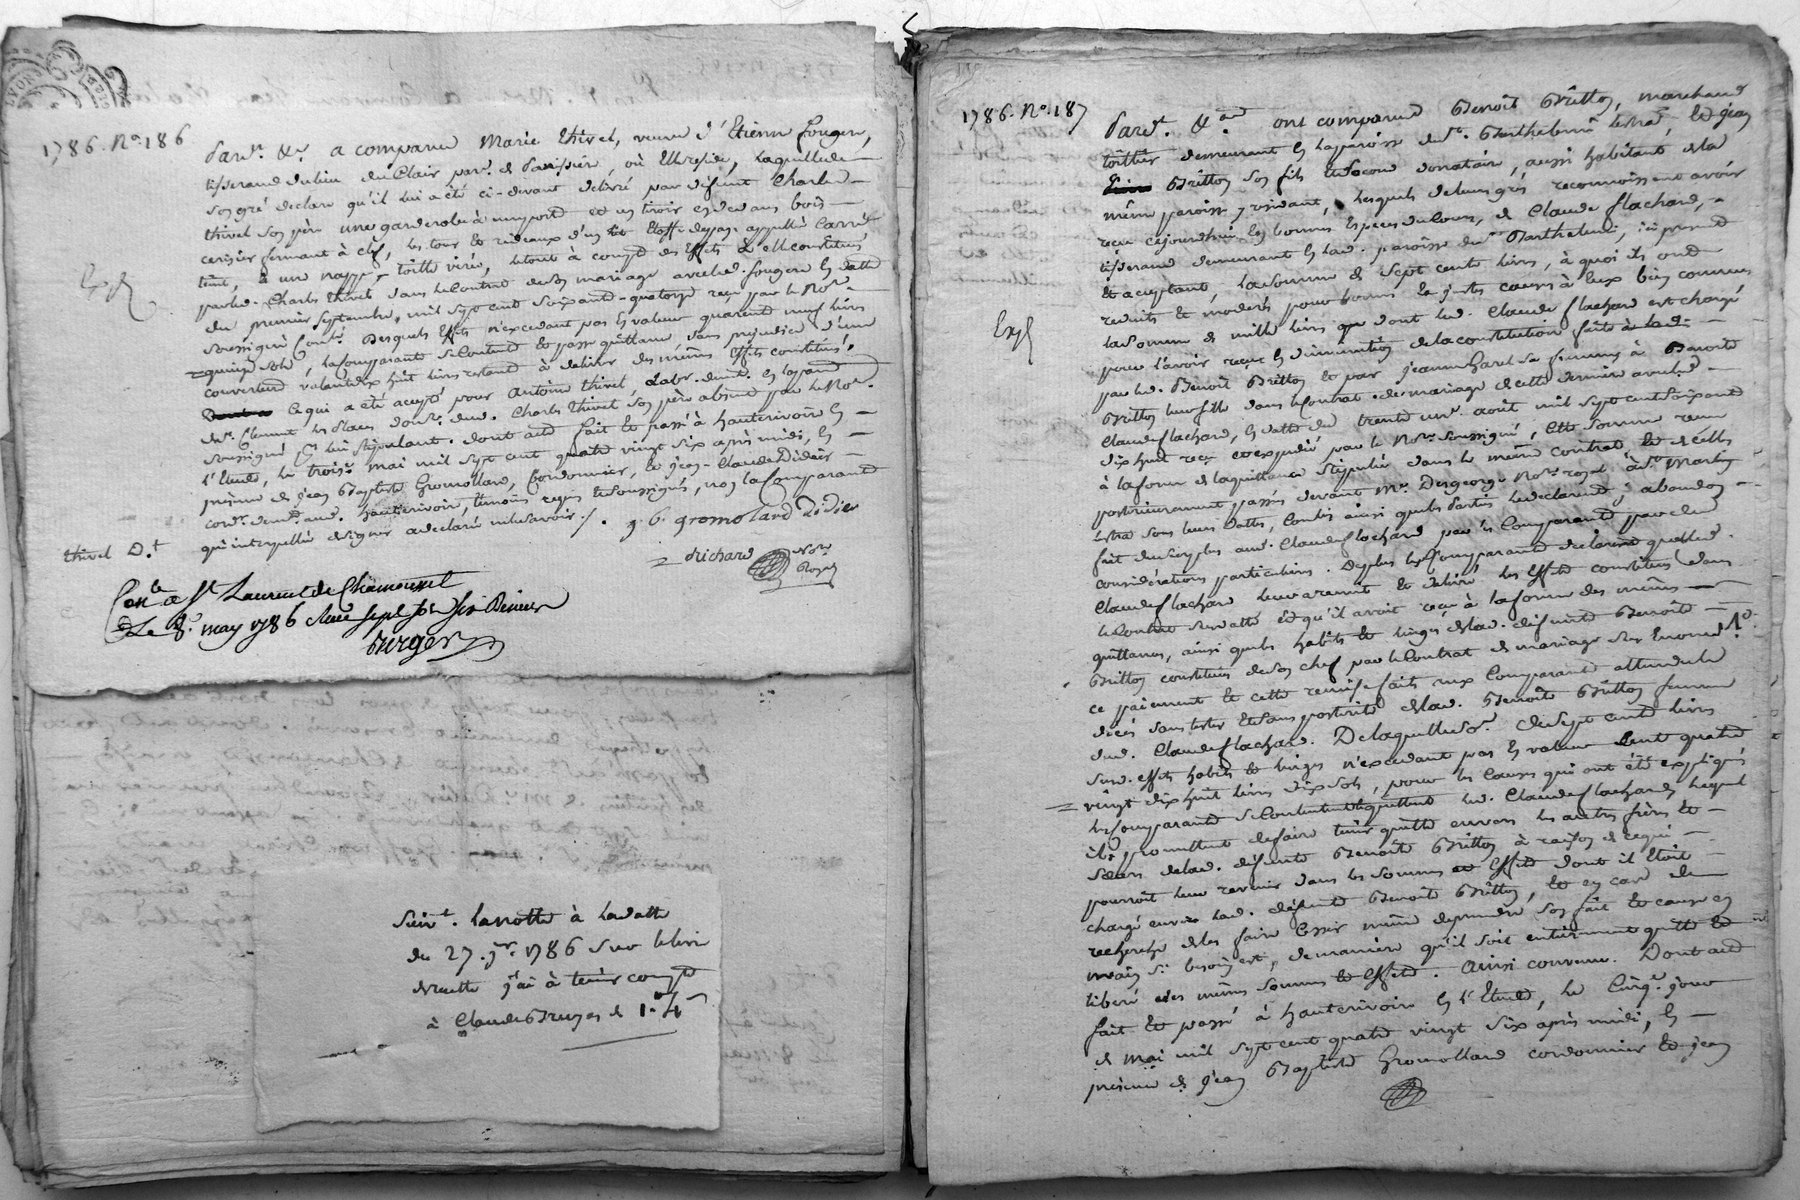 1786. No. 186
Pardt. &c. a comparu Marie thivel, veuve d'Etienne fougere,
tisserand du lieu du Clair parse. de Panissiere, où Elle reside, laquelle de
son gré declare qu'il lui a été ci-devant delivré par defunt Charles
thivel son père une garderobe à une porte et un tiroir en dedans bois
cerisier fermant à clef, les tour et rideaux d'un lit
teint, & une nappe toille
par led. Charles thivel dans le Contrat de son mariage avec led. fougere en datte
du premier septembre, mil sept cent soixante-quatorze reçu par le Nore.
soussigné Desquels Effets n'excedant pas en valeur quarente neuf livres
quinze sols, la Comparante se Contente et passe quittance sans prejudice d'une
couverture valant dix huit livres restant à delivrer des mêmes Effets constitués.
Ce qui a eté accepté pour Antoine thivel, Labr. demt. en la parse.
de St. Clement les places dud. Charles thivel son père absent par le Nore.
soussigné pr. lui stipulant. dont acte fait et passé à hauterivoire en
l'Etude, le trois mai mil sept cent quatre vingt six après midi, en
présence de jean Baptiste Gromollard, Cordonnier, et jean-Claude Didier
cordr. demt. aud. hauterivoire, temoins requis et soussignés, non la Comparante
qui interpellée de signer a declaré ne le savoir ./.
j. b. gromolard Didier
thivel D.t
drichard Nore. Royal
Conle. a St. Laurent de Chamousset
Le 8. may 1786
Berger
Suivt. la notte à la datte
du 27. jr. 1786 sur le livre
de recette j'ai à tenir compte
à Claude Bruyas de 1# 4s
1786. No. 187
Pardt. &c. ont comparu Benoît Britton, marchand
toillier demeurant en la paroisse de St. Barthelemi lestra, et jean
Britton son fils et second donataire, aussi habitant de la
même paroisse y residant, lesquels de leur gré reconnoissent avoir
reçu cejourd'hui en bonnes Especes du Cours, de Claude flachard,
tisserand demeurant en lad. paroisse de St. Barthelemi, ici present
et acceptant, la somme de sept cents livres, à quoi ils ont
reduits et moderés pour bonnes et justes causes à eux bien connues
la somme de mille livres dont led. Claude flachard est chargé
pour l'avoir reçue en diminution de la constitution faite
par led. Benoît Britton et par jeanne harel sa femme à Benoite
Britton leur fille dans le Contrat de mariage de cette derniere avec led.
Claude flachard, en datte du trente un août mil sept cent soixante
dix huit reçu et expedié par le Nore. soussigné, Cette somme reçue
à la forme de la quittance stipulée dans le même contrat, et de celles
posterieurement passées devant Me. Desgeorge Nore. royal à St. Martin
lestra sous leurs dattes, Comme ainsi que les Parties le declarent, abandon
fait du surplus aud. Claude flachard par les Comparants par
considérations particulieres. De plus les Comparants declarent que led.
Claude flachard leur a remis et delivré les Effets constitués dans
le Contrat susdatté et qu'il avoit reçu à la forme des mêmes
quittances, ainsi que les habits et linges de lad. defunte Benoite
Britton constitués de son chef par le Contrat de mariage
ce paiement et cette remise faits aux Comparants attendu le
décès sans tester et sans posterité de lad. Benoite Britton femme
dud. Claude flachard. De laquelle so. de sept cents livres
susd. effets habits et linges n'excedant pas en valeur cent quatre
vingt dix huit livres dix sols, pour les Causes qui ont été expliquées
les Comparants se Contentent et quittent led. Claude flachard, lequel
ils promettent de faire tenir quitte envers les autres frères et
sœurs de lad. defunte Benoite Britton à raison de ce qui
pourroit leur revenir dans les sommes et effets dont il etoit
chargé envers lad. defunte Benoite Britton, et en cas de
recherche de les faire Cesser même de prendre son fait et cause en
main si besoin est, de maniere qu'il soit entierement quitte et
liberé des mêmes sommes et effets. Ainsi convenu. Dont acte
fait et passé à hauterivoire en l'Etude, le Cinqe. jour
de Mai mil sept cent quatre vingt six après midi, en
présence de jean Baptiste Gromollard cordonnier et jean